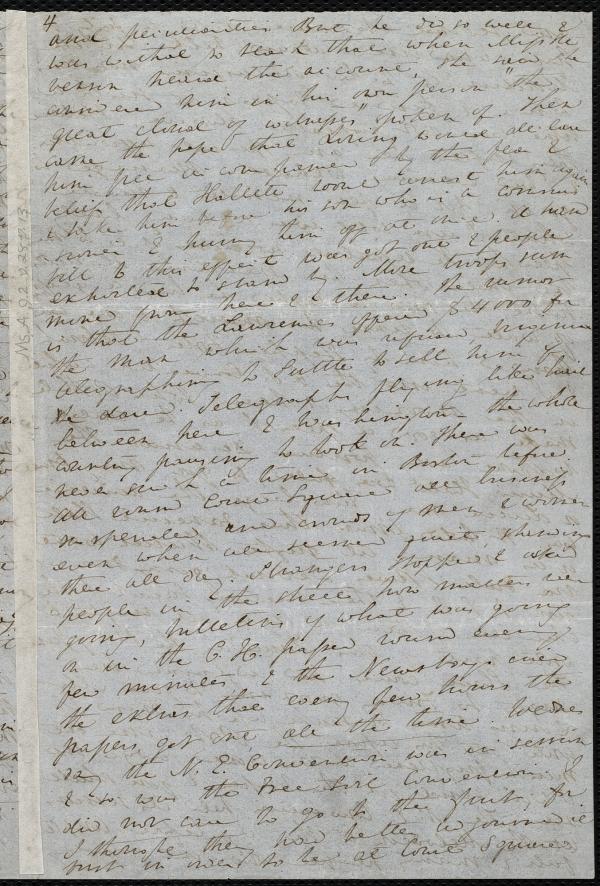 4
and peculiarities. But he do so well &
was withal so that when Miss Ste
venson heard the account, she saw she
answered him in his own person "the
great cloud of witnesses" spoken of. Then
came the hope that Loring would declare
him free accompanied by the fear &
belief that Hallett would arrest him again
& take him before his son who is a commis
sioner & hurry him off at once. A hand
bill to this effect was got out & people
exhorted to stand by. More troops sum
moned from here & there. The rumor
is that the Lawrences offered $4000 for
the man which was refused, Virginia
telegraphing to Suttle to sell him if
he dared. Telegraphs flying like hail
between here & Washington the whole
country pausing to look on. There was
never such a time in Boston before.
All round Court Square all business
suspended, and crowds of men & women
even when all seemed quiet, standing
there all day. Strangers stopped & asked
people in the street how matters were
going, bulletins of what was going
on in the C. H. passed round every
few minutes, & the Newsboys cried
the extras there every few hours the
papers got me all the time. Wednes
day the N. E. Convention was in session
& so was the Free Soil Convention. I
did not care to go to the first, for
I thought they had better adjourned it
just in order to be at Court Square
Ms.A.9.2